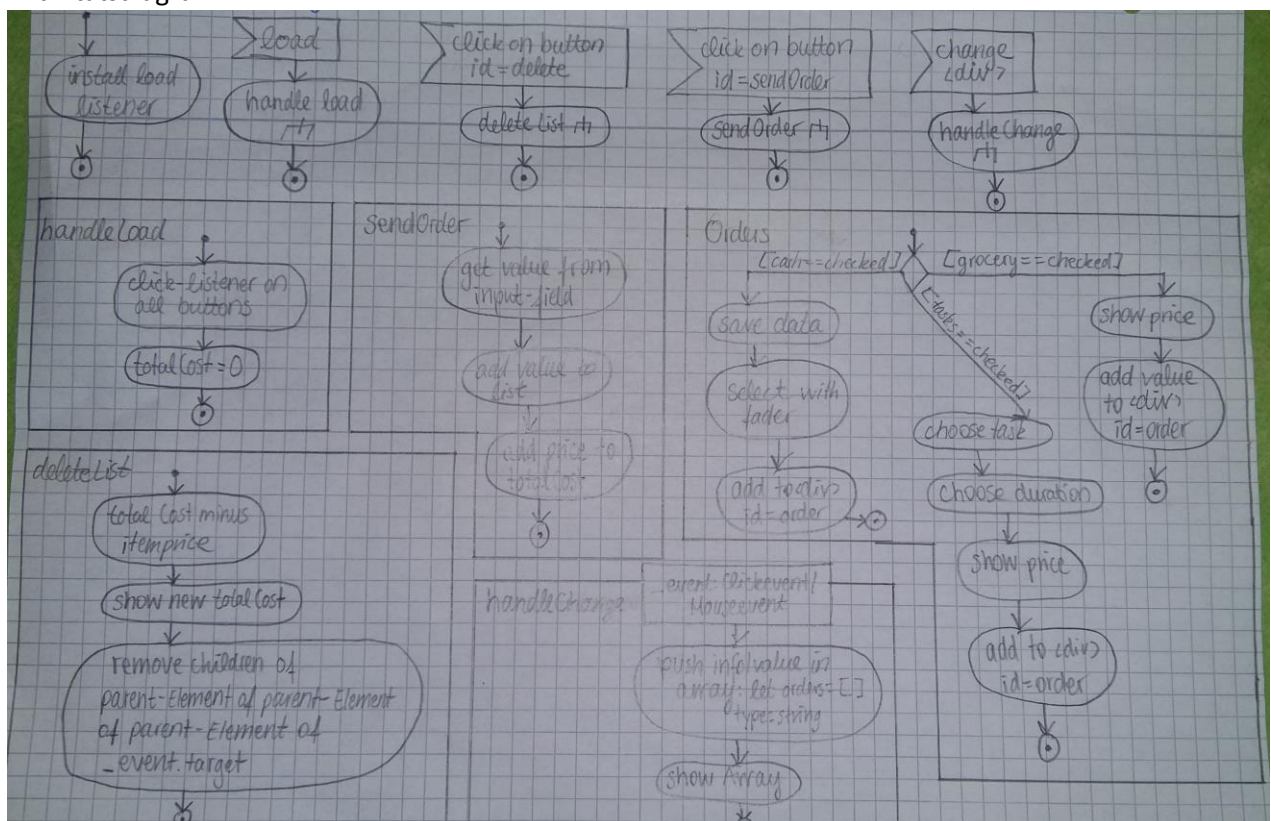 install load
listener
load
handle load
click on button
id=delete
deleteList
click on button
id=sendOrder
sendOrder
change
<div>
handleChange
handleLoad
click-listener on
all buttons
totalCost=0
sendOrder
get value from
input-field
add value to
list
add price to
totalCost
Orders
[cash==checked]
[grocery==checked]
[tasks==checked]
save data
select with
fader
add to <div>
id=order
choose task
choose duration
show price
add to <div>
id=order
show price
add value
to <div>
id=order
deleteList
total Cost minus
itemprice
show new totalCost
remove children of
parent-Element of parent-Element
of parent-Element of
_event.target
handleChange
_event: Clickevent/
Mouseevent
push info/value in
array: let orders=[]
type=string
show Array